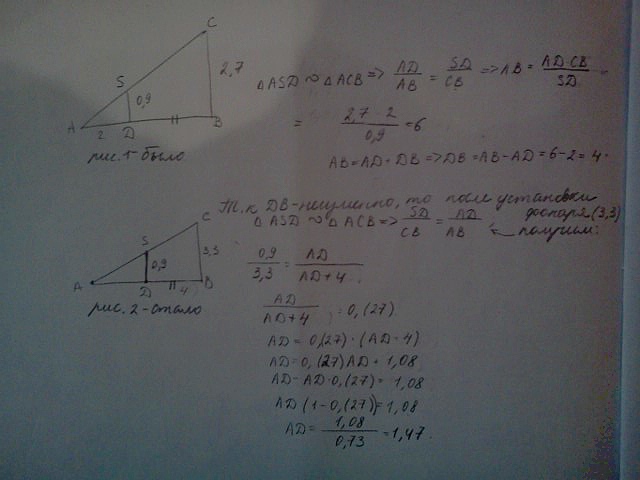 C
S
2,7
0,9
A 2 D B
рис. 1 - было
△ASD ∾ △ACB => AD/AB = SD/CB => AB = AD·CB/SD
= 2,7·2/0,9 = 6
AB = AD + DB => DB = AB - AD = 6 - 2 = 4.
Т. к DB - неизменно, то после установки
фонаря (3,3)
△ASD ∾ △ACB => SD/CB = AD/AB получим:
C
S
3,3
0,9
A D 4 B
рис. 2 - стало
0,9/3,3 = AD/AD+4
AD/AD+4 = 0,(27)
AD = 0,(27)·(AD+4)
AD = 0,(27)AD + 1,08
AD - AD·0,(27) = 1,08
AD (1 - 0,(27)) = 1,08
AD = 1,08/0,73 = 1,47